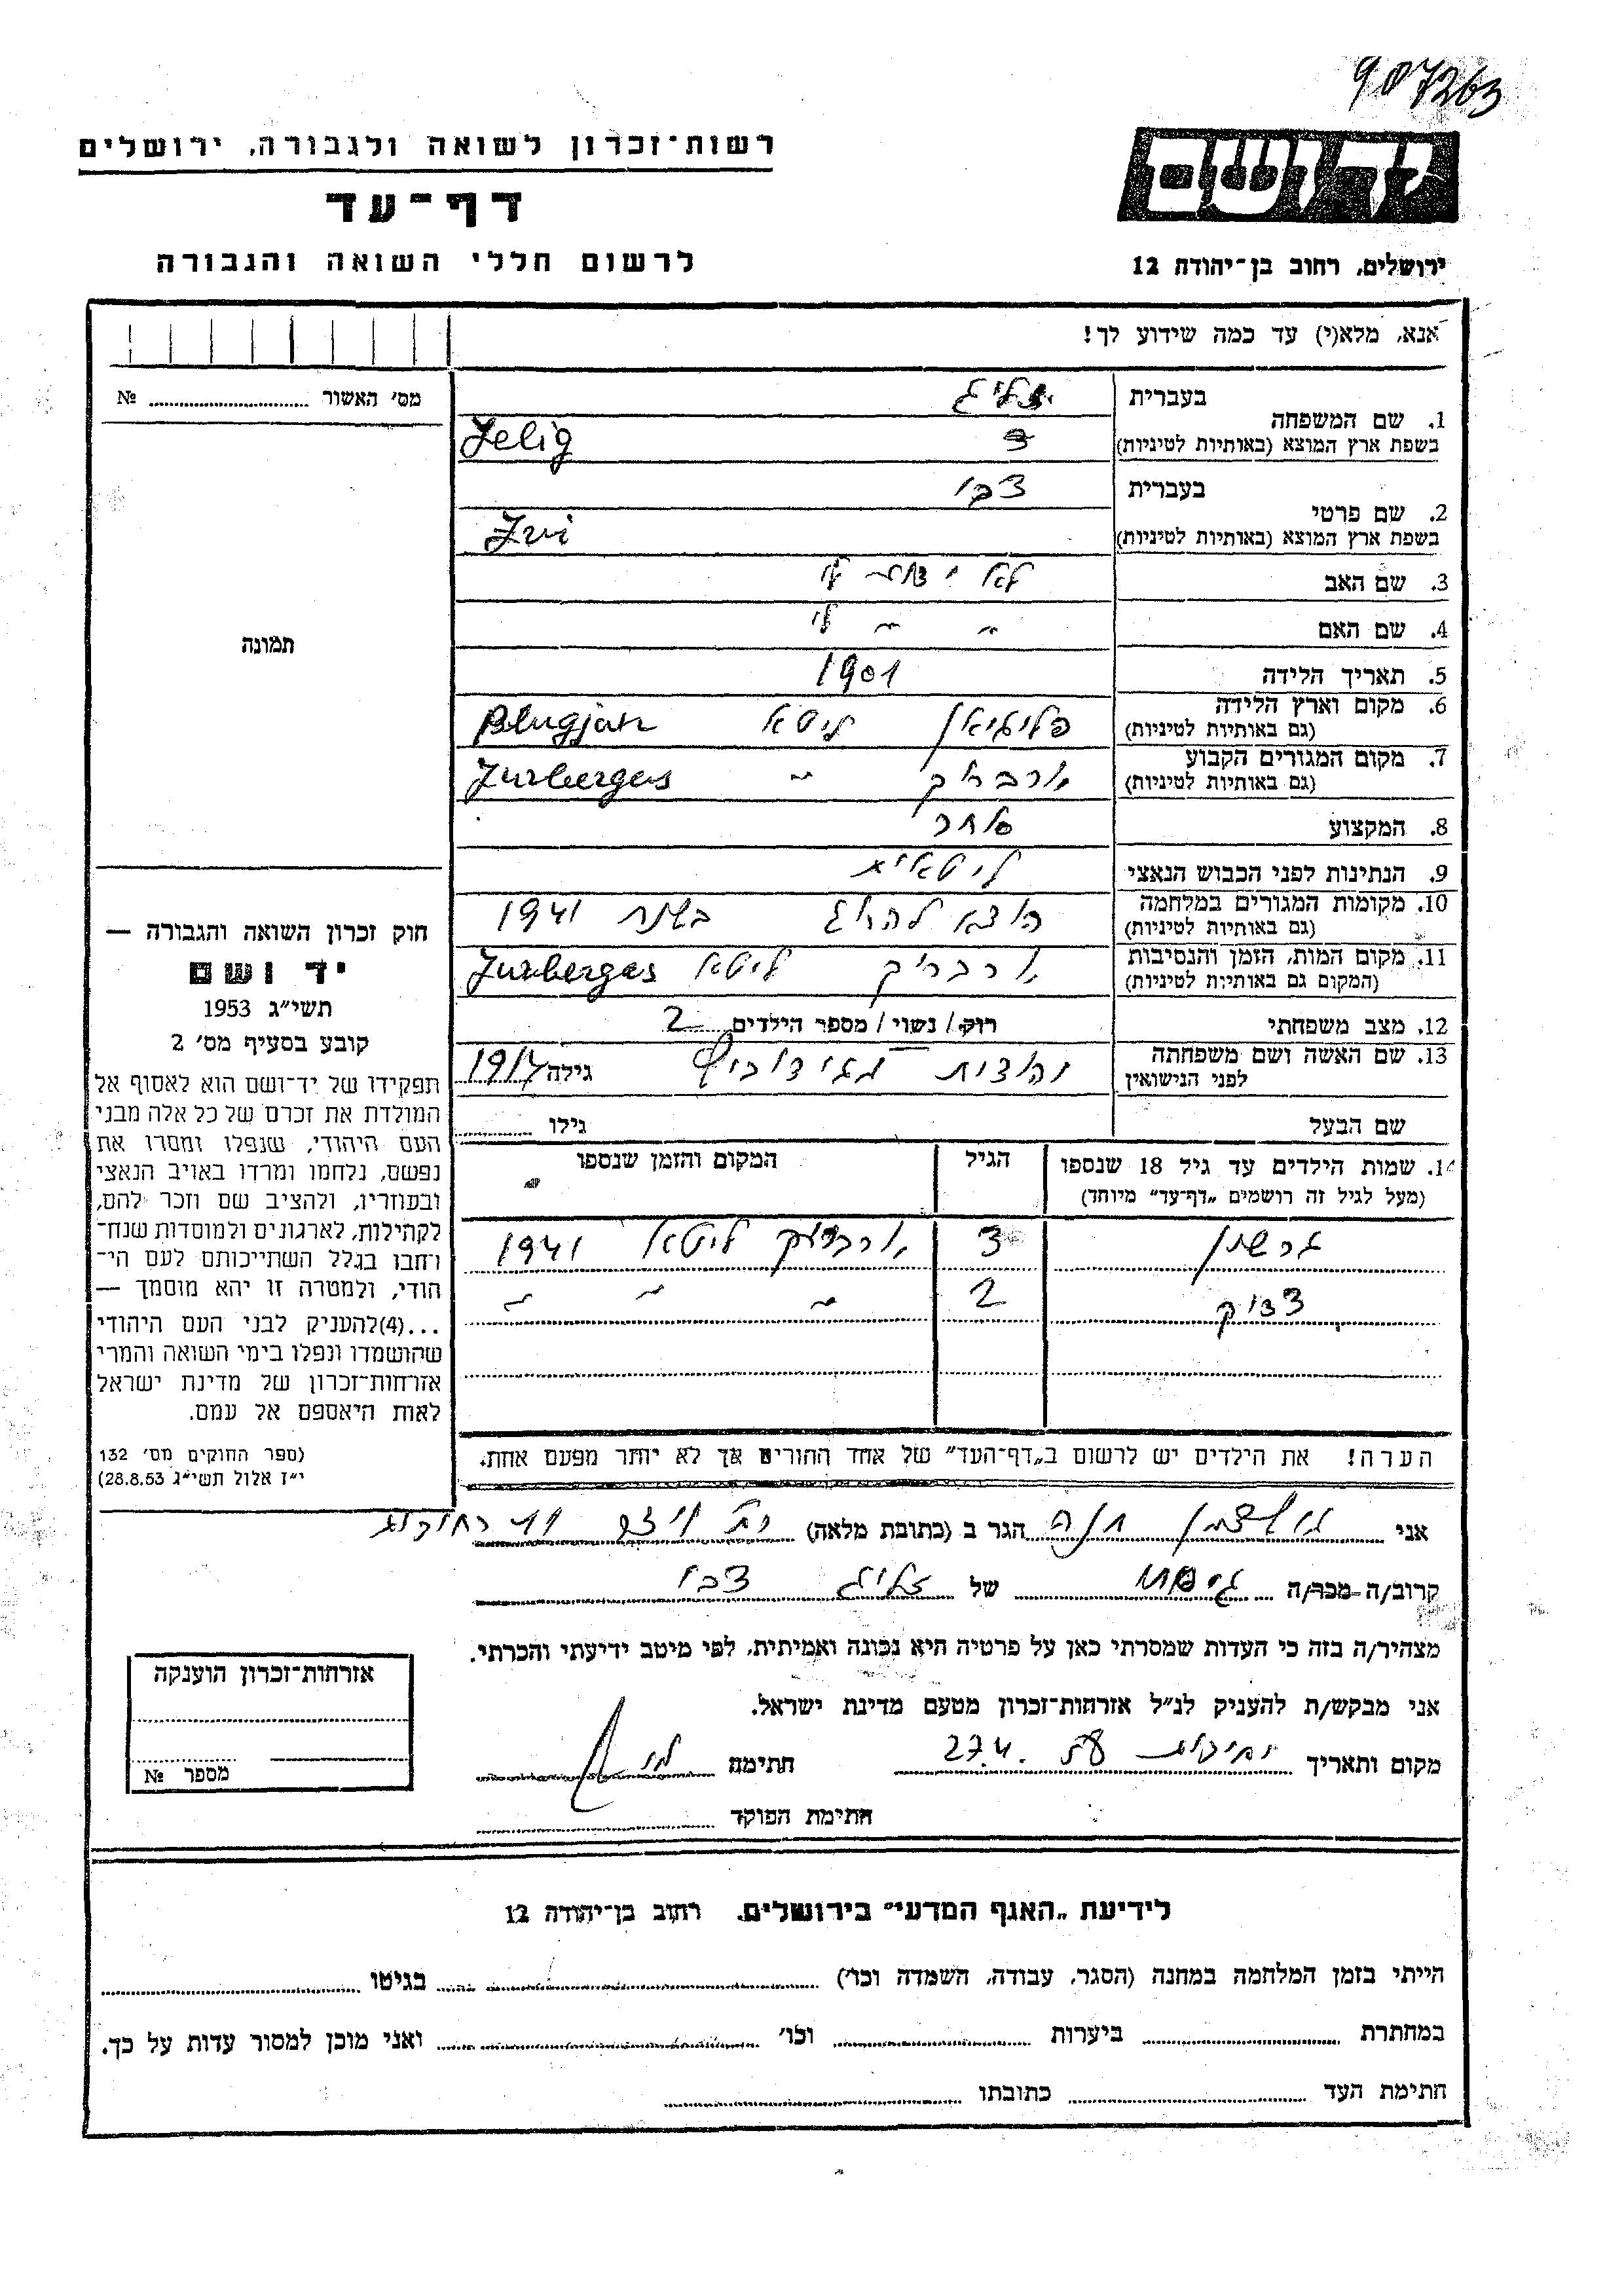 907263
רשות־זכרון לשואה ולגבורה, ירושלים
דף־עד
לרשום חללי השואה והגבורה
יד ושם
ירושלים, רחוב בן־יהודה 12
אנא, מלא(י) עד כמה שידוע לך!
מס׳ האשור № 
1. שם המשפחה
בעברית זליג
בשפת ארץ המוצא (באותיות לטיניות) Zelig
2. שם פרטי
בעברית צבי
בשפת ארץ המוצא (באותיות לטיניות) Zvi
3. שם האב לא ידוע לי
4. שם האם " " לי
5. תאריך הלידה 1901
6. מקום וארץ הלידה ליטא Plugjan
(גם באותיות לטיניות)
7. מקום המגורים הקבוע יורבורק " Jurbergas
(גם באותיות לטיניות)
8. המקצוע סוחר
9. הנתינות לפני הכבוש הנאצי ליטאית
10. מקומות המגורים במלחמה הוצא להורג בשנת 1941
(גם באותיות לטיניות)
11. מקום המות, הזמן והנסיבות יורבורק ליטא Jurbergas
(המקום גם באותיות לטיניות)
12. מצב משפחתי רוק / נשוי / מספר הילדים 2
13. שם האשה ושם משפחתה
לפני הנישואין גילה 1917
שם הבעל גילו
14. שמות הילדים עד גיל 18 שנספו הגיל המקום והזמן שנספו
(מעל לגיל זה רושמים „דף־עד״ מיוחד)
גרשון 3 יורבורק ליטא 1941
2 " " "
הערה! את הילדים יש לרשום ב„דף־העד״ של אחד ההורים אך לא יותר מפעם אחת.
תמונה
חוק זכרון השואה והגבורה —
יד ושם
תשי״ג 1953
קובע בסעיף מס׳ 2
תפקידו של יד־ושם הוא לאסוף אל
המולדת את זכרם של כל אלה מבני
העם היהודי, שנפלו ומסרו את
נפשם, נלחמו ומרדו באויב הנאצי
ובעוזריו, ולהציב שם וזכר להם,
לקהילות, לארגונים ולמוסדות שנח־
רחבו בגלל השתייכותם לעם הי־
הודי, ולמטרה זו יהא מוסמך —
...(4)להעניק לבני העם היהודי
שהושמדו ונפלו בימי השואה והמרי
אזרחות־זכרון של מדינת ישראל
לאות היאספם אל עמם.
(ספר החוקים מס׳ 132
י״ז אלול תשי״ג 28.8.53)
אני חנה הגר ב (כתובת מלאה) רחובות
קרוב/ה מכר/ה גיסתו של זליג צבי
מצהיר/ה בזה כי העדות שמסרתי כאן על פרטיה היא נכונה ואמיתית, לפי מיטב ידיעתי והכרתי.
אני מבקש/ת להעניק לנ״ל אזרחות־זכרון מטעם מדינת ישראל.
מקום ותאריך רחובות 27.4. חתימה
חתימת הפוקד
אזרחות־זכרון הוענקה
מספר №
לידיעת „האגף המדעי״ בירושלים, רחוב בן־יהודה 12
הייתי בזמן המלחמה במחנה (הסגר, עבודה, השמדה וכו׳) בגיטו
במחתרת ביערות וכו׳ ואני מוכן למסור עדות על כך.
חתימת העד כתובתו